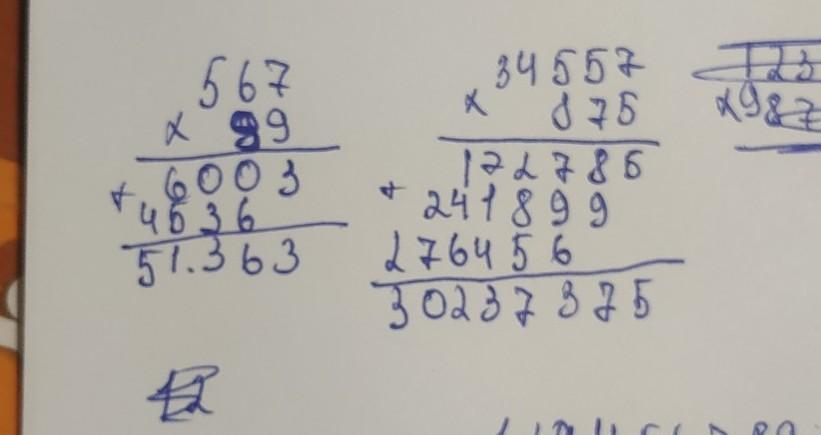 567
x 99
6003
+ 4536
51.363
34557
x 875
172785
+ 241899
276456
30237375
123
x987